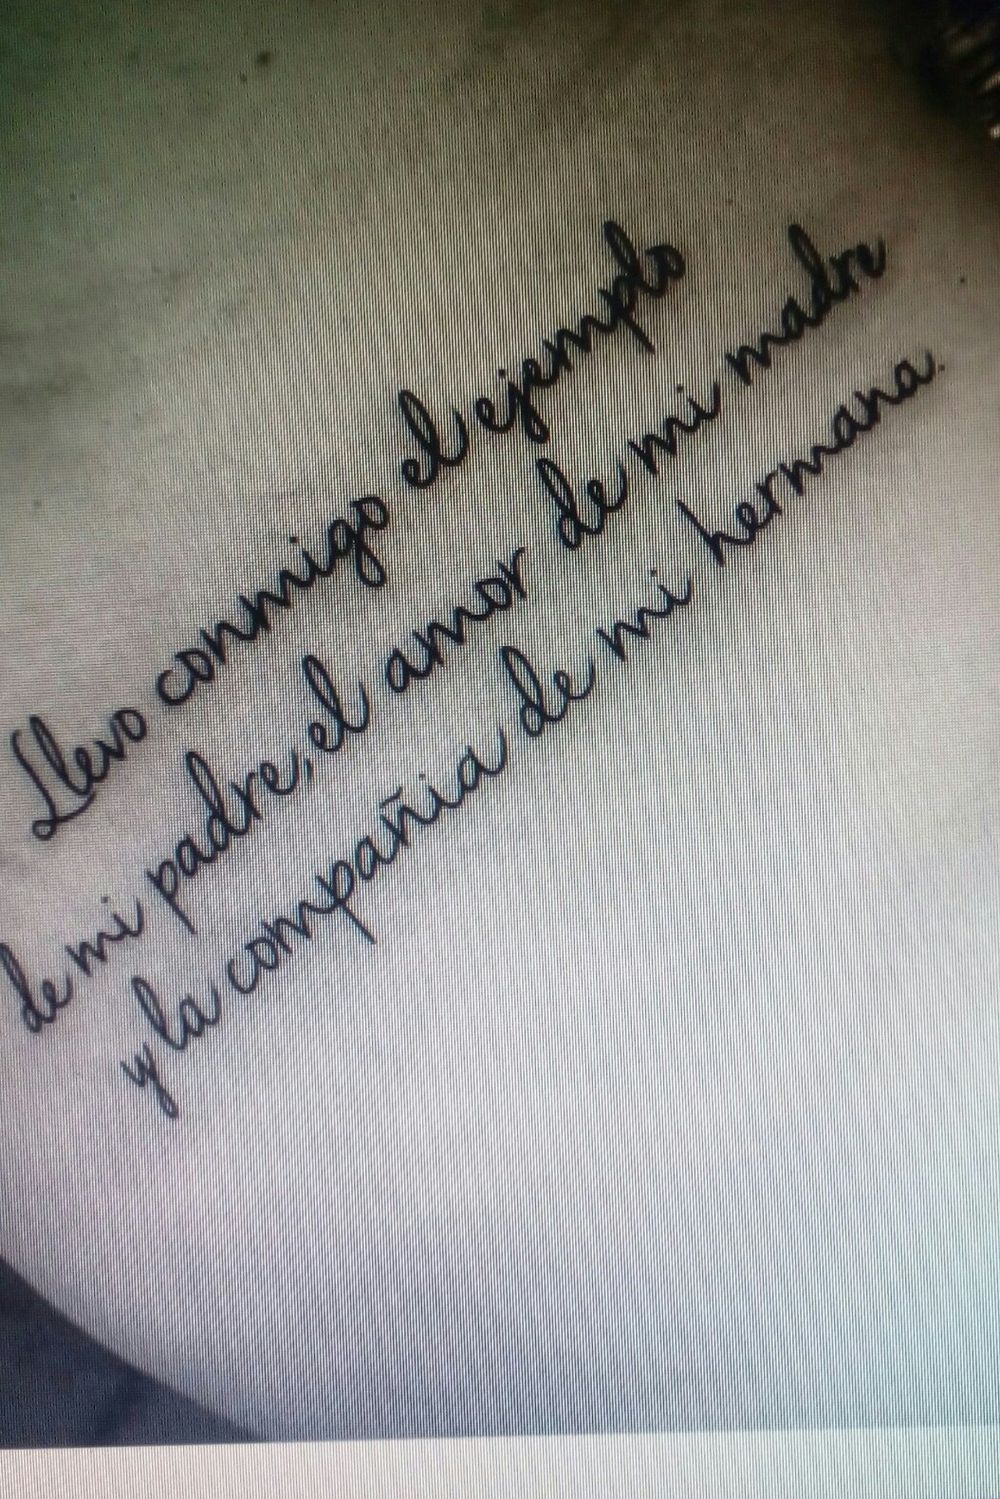 Llevo conmigo el ejemplo
de mi padre, el amor de mi madre
y la compañia de mi hermana.